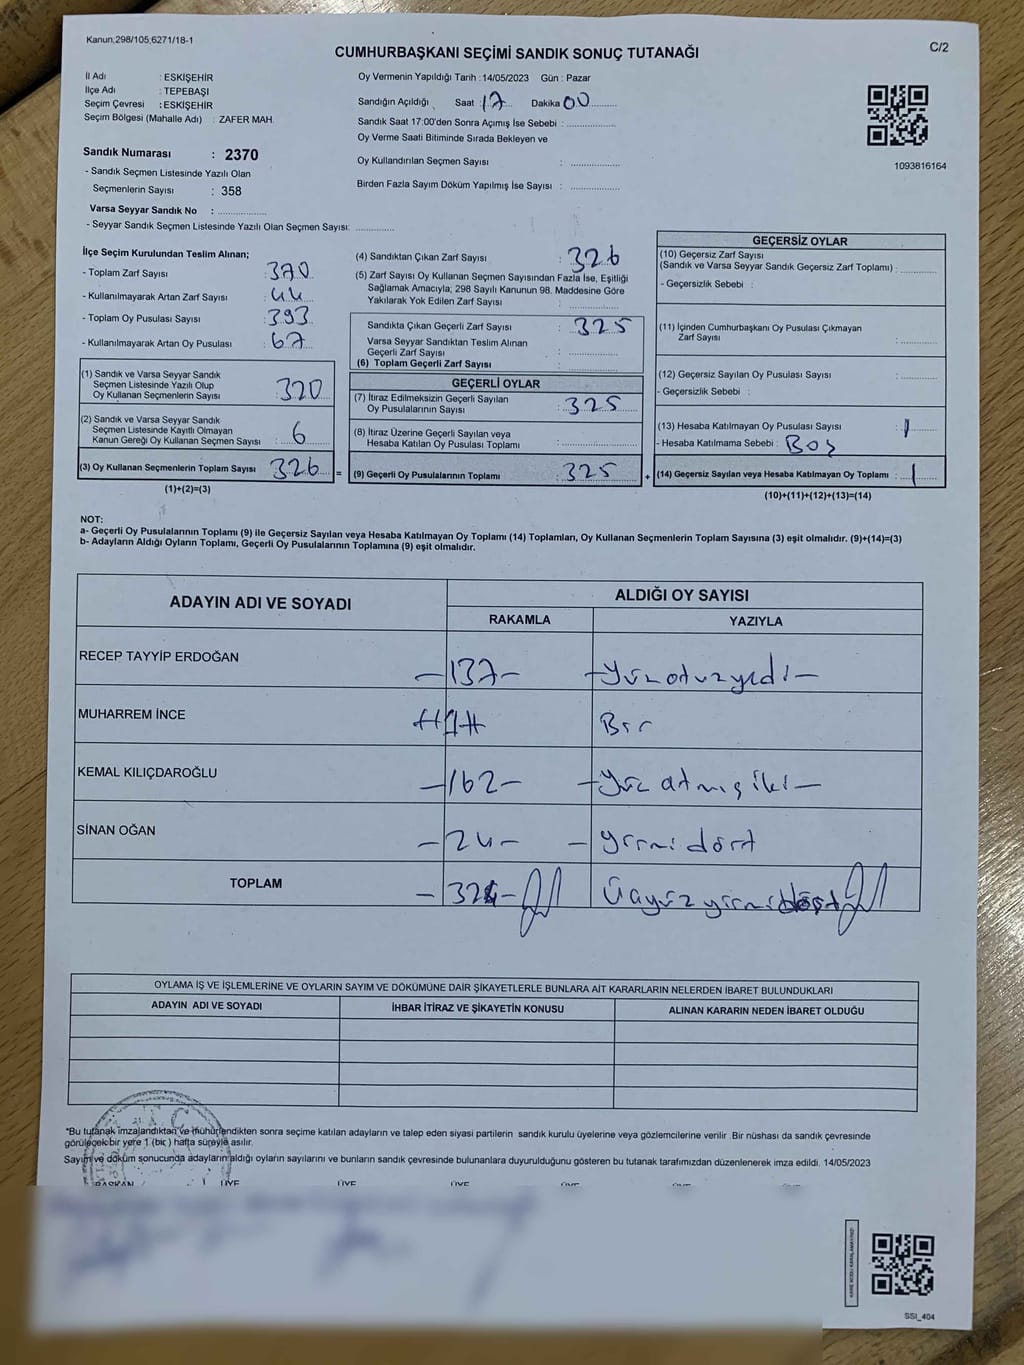 Kanun;298/105,6271/18-1
C/2
CUMHURBAŞKANI SEÇİMİ SANDIK SONUÇ TUTANAĞI
İl Adı : ESKİŞEHİR
İlçe Adı : TEPEBAŞI
Seçim Çevresi : ESKİŞEHİR
Seçim Bölgesi (Mahalle Adı) : ZAFER MAH.
Sandık Numarası : 2370
- Sandık Seçmen Listesinde Yazılı Olan
Seçmenlerin Sayısı : 358
Varsa Seyyar Sandık No : ...................
- Seyyar Sandık Seçmen Listesinde Yazılı Olan Seçmen Sayısı: ...............
Oy Vermenin Yapıldığı Tarih :14/05/2023 Gün : Pazar
Sandığın Açıldığı Saat : 17 Dakika 00
Sandık Saat 17:00'den Sonra Açımış İse Sebebi : ...................
Oy Verme Saati Bitiminde Sırada Bekleyen ve
Oy Kullandırılan Seçmen Sayısı : ...................
Birden Fazla Sayım Döküm Yapılmış İse Sayısı : ...................
1093816164
İlçe Seçim Kurulundan Teslim Alınan;
- Toplam Zarf Sayısı : 370
- Kullanılmayarak Artan Zarf Sayısı : 44
- Toplam Oy Pusulası Sayısı : 393
- Kullanılmayarak Artan Oy Pusulası : 67
(1) Sandık ve Varsa Seyyar Sandık
Seçmen Listesinde Yazılı Olup
Oy Kullanan Seçmenlerin Sayısı : 320
(2) Sandık ve Varsa Seyyar Sandık
Seçmen Listesinde Kayıtlı Olmayan
Kanun Gereği Oy Kullanan Seçmen Sayısı : 6
(3) Oy Kullanan Seçmenlerin Toplam Sayısı : 326
(1)+(2)=(3)
=
(4) Sandıktan Çıkan Zarf Sayısı : 326
(5) Zarf Sayısı Oy Kullanan Seçmen Sayısından Fazla İse, Eşitliği
Sağlamak Amacıyla; 298 Sayılı Kanunun 98. Maddesine Göre
Yakılarak Yok Edilen Zarf Sayısı : ...................
Sandıkta Çıkan Geçerli Zarf Sayısı : 325
Varsa Seyyar Sandıktan Teslim Alınan
Geçerli Zarf Sayısı : ...................
(6) Toplam Geçerli Zarf Sayısı : ...................
GEÇERLİ OYLAR
(7) İtiraz Edilmeksizin Geçerli Sayılan
Oy Pusulalarının Sayısı : 325
(8) İtiraz Üzerine Geçerli Sayılan veya
Hesaba Katılan Oy Pusulası Toplamı : ...................
(9) Geçerli Oy Pusulalarının Toplamı : 325
+
GEÇERSİZ OYLAR
(10) Geçersiz Zarf Sayısı
(Sandık ve Varsa Seyyar Sandık Geçersiz Zarf Toplamı) : ...............
- Geçersizlik Sebebi :
(11) İçinden Cumhurbaşkanı Oy Pusulası Çıkmayan
Zarf Sayısı : ...............
(12) Geçersiz Sayılan Oy Pusulası Sayısı : ...............
- Geçersizlik Sebebi :
(13) Hesaba Katılmayan Oy Pusulası Sayısı : 1
- Hesaba Katılmama Sebebi : Boş
(14) Geçersiz Sayılan veya Hesaba Katılmayan Oy Toplamı : 1
(10)+(11)+(12)+(13)=(14)
NOT:
a- Geçerli Oy Pusulalarının Toplamı (9) ile Geçersiz Sayılan veya Hesaba Katılmayan Oy Toplamı (14) Toplamları, Oy Kullanan Seçmenlerin Toplam Sayısına (3) eşit olmalıdır. (9)+(14)=(3)
b- Adayların Aldığı Oyların Toplamı, Geçerli Oy Pusulalarının Toplamına (9) eşit olmalıdır.
ADAYIN ADI VE SOYADI
ALDIĞI OY SAYISI
RAKAMLA YAZIYLA
RECEP TAYYİP ERDOĞAN -137- -Yüz otuz yedi-
MUHARREM İNCE 1 Bir
KEMAL KILIÇDAROĞLU -162- -Yüz atmış iki-
SİNAN OĞAN -24- - yirmi dört
TOPLAM
OYLAMA İŞ VE İŞLEMLERİNE VE OYLARIN SAYIM VE DÖKÜMÜNE DAİR ŞİKAYETLERLE BUNLARA AİT KARARLARIN NELERDEN İBARET BULUNDUKLARI
ADAYIN ADI VE SOYADI İHBAR İTİRAZ VE ŞİKAYETİN KONUSU ALINAN KARARIN NEDEN İBARET OLDUĞU
*Bu tutanak imzalandıktan ve mühürlendikten sonra seçime katılan adayların ve talep eden siyasi partilerin sandık kurulu üyelerine veya gözlemcilerine verilir .Bir nüshası da sandık çevresinde
görülecek bir yere 1 (bir ) hafta süreyle asılır.
Sayım ve döküm sonucunda adayların aldığı oyların sayılarını ve bunların sandık çevresinde bulunanlara duyurulduğunu gösteren bu tutanak tarafımızdan düzenlenerek imza edildi. 14/05/2023
BAŞKAN ÜYE ÜYE ÜYE ÜYE ÜYE ÜYE
KARE KODU KARALAMAYINIZ!
SSI_404